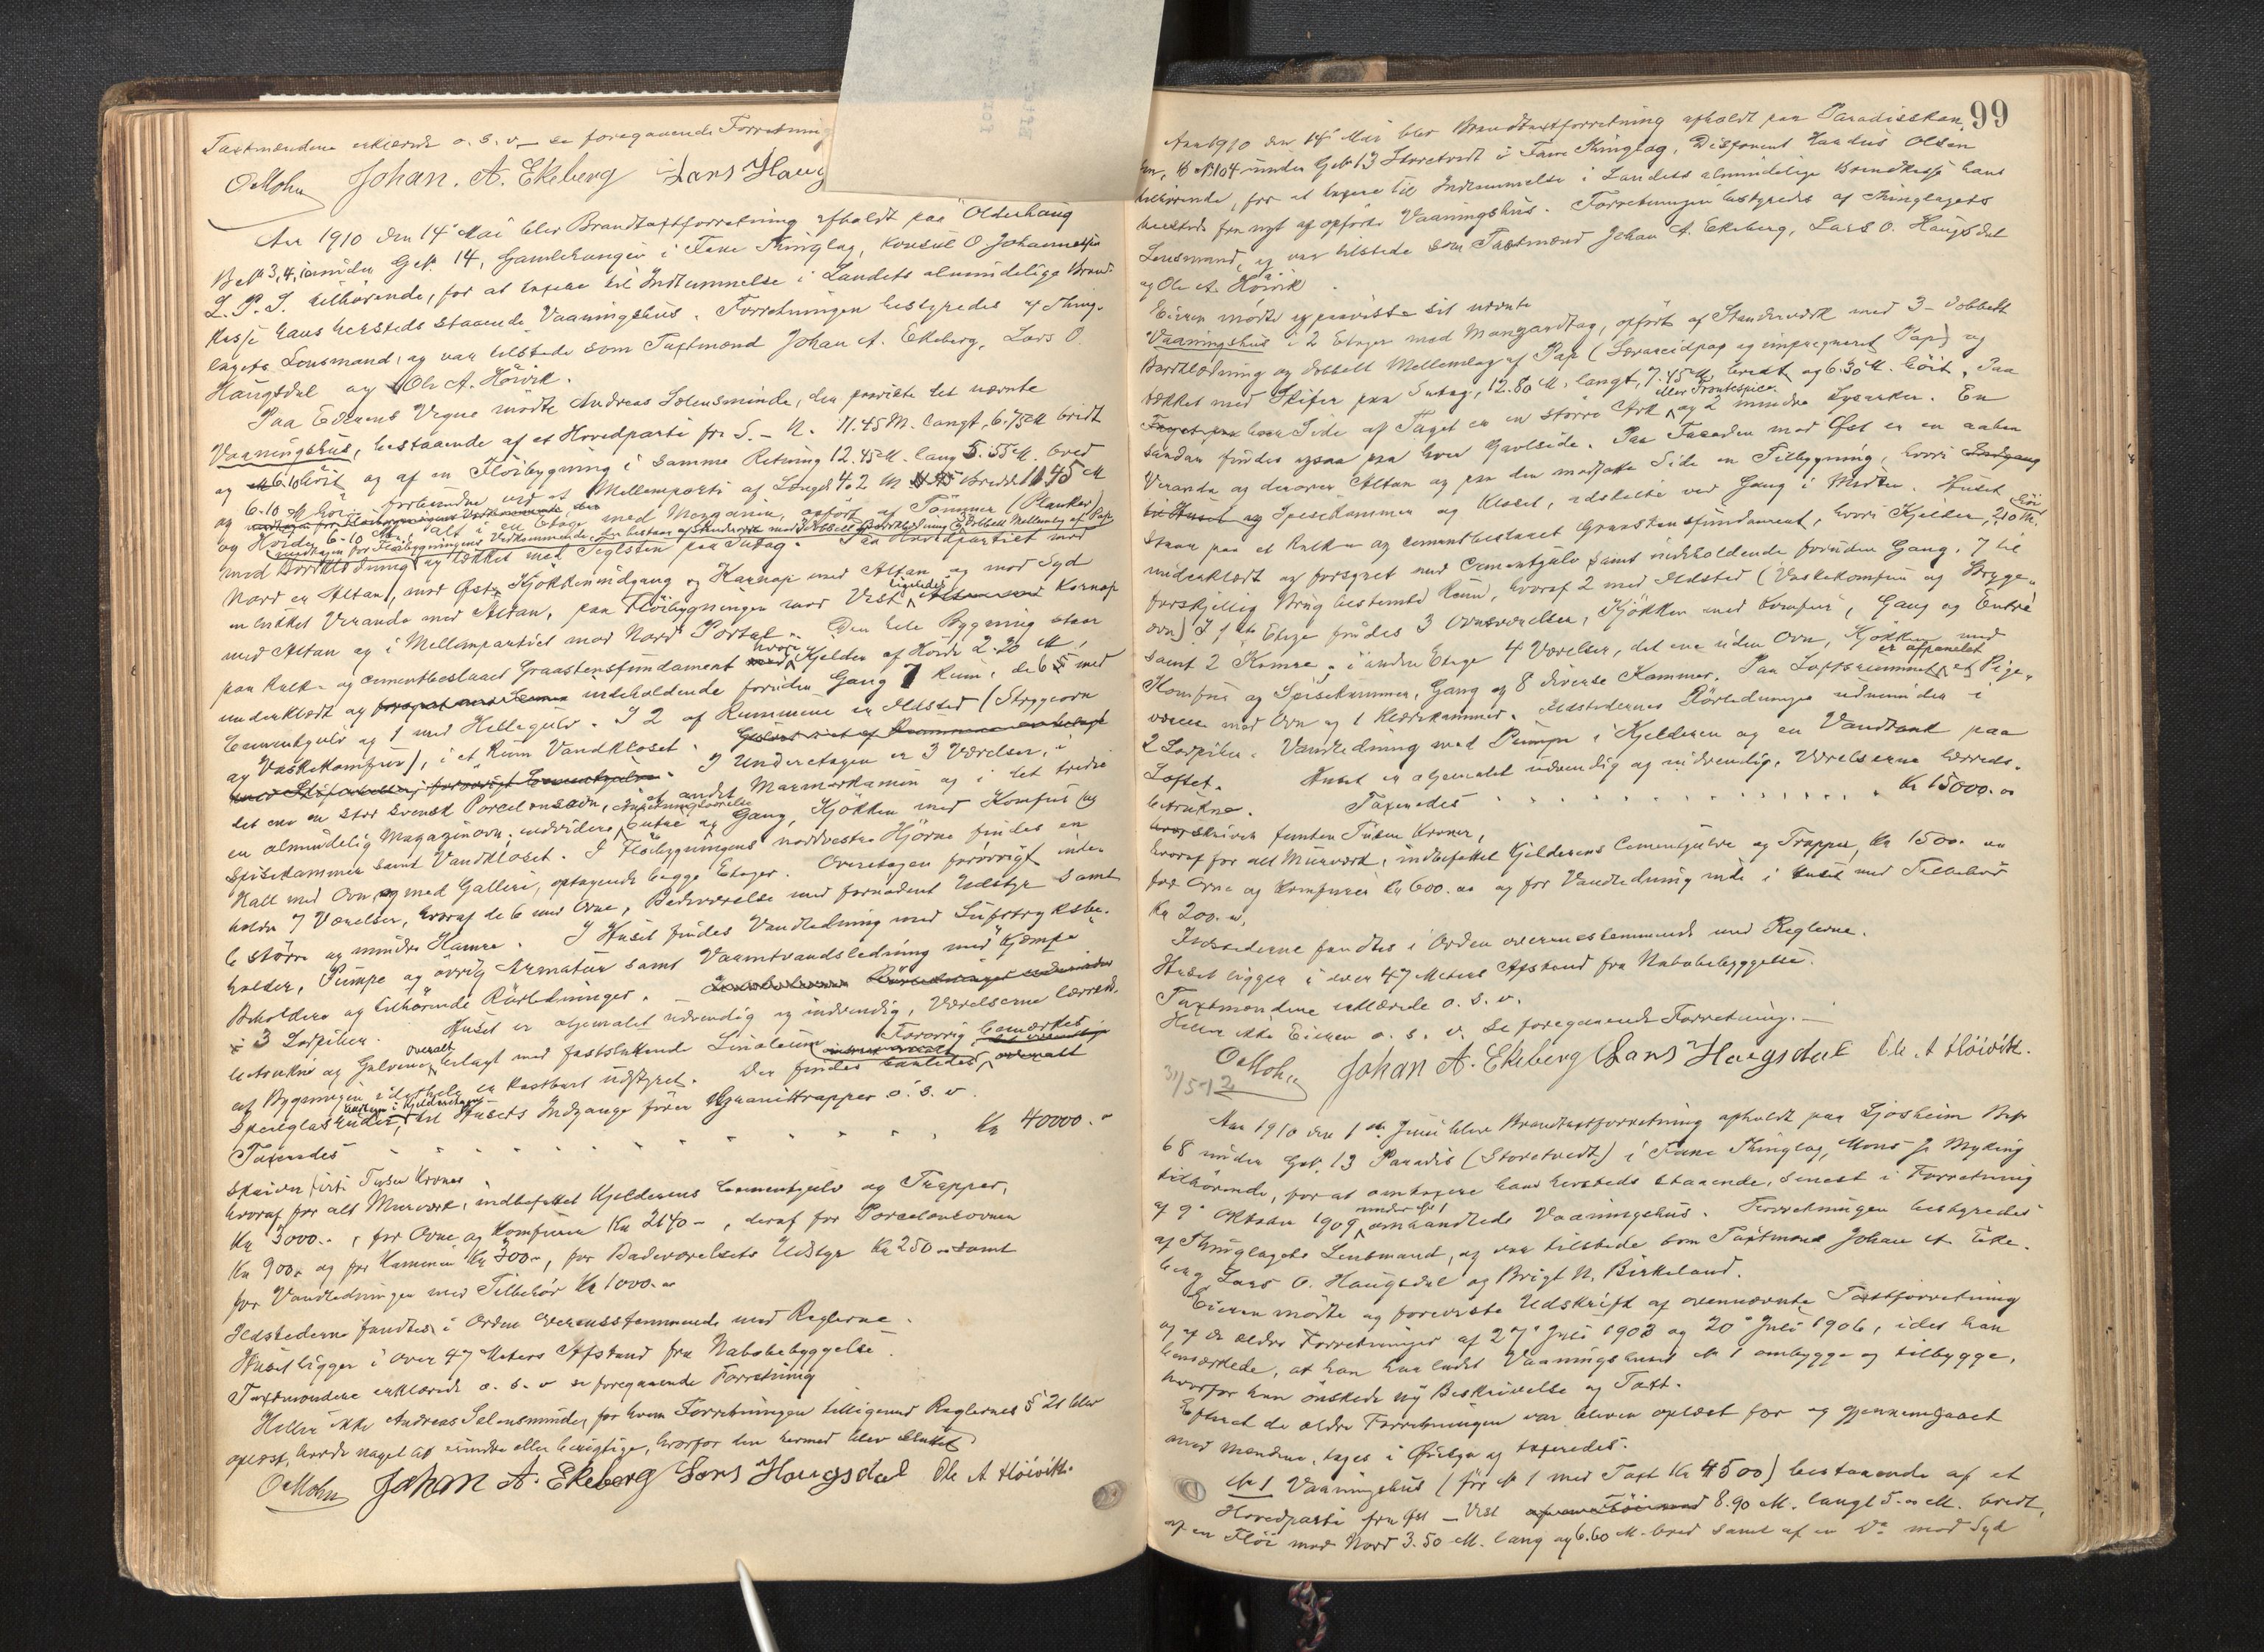 Taxtmændene erklærede o. s. v. se foregaaende Forretning
OMohn Johan. A. Ekeberg Lars Haug
Aar 1910 den 14' Mai blev Brandtaxtforretning afholdt paa Olderhaug
B No 3, 4, under G No 14, Gamlehaugen i Fane Thinglag, Konsul O Johannessen
tilhørende, for at taxere til Indtemmelse i Landets almindelige Brand-
kasse hans hersteds staaende Vaaningshus. Forretningen bestyredes af Thing-
lagets Lensmand, og var tilstede som Taxtmænd Johan A. Ekeberg, Lars O.
Haugsdal og Ole A. Høivik.
Paa Eierens Vegne mødte Andreas Solensminde, den paaviste det nævnte
Vaaningshus, bestaaende af et Hovedparti fra S. - N. 11.45 M. langt, 6.75 M bredt
og 6.10 høit og af en Fløibygning i samme Retning 12.45 M. lang 5.55 M. bred
og 6.10 M høi forbundne ved et Mellemparti af Længde 4.2 M Bredde 11.45 M
og Høide 6.10 M. alt i en Etage med Mezanin, opført af Tømmer (Planker)
med Bordklædning og tækket med Teglsten paa Sutag. Paa Hovedpartiet mod
Nord er Altan, mod Øst Kjøkkenindgang og Karnap med Altan og mod Syd
en lukket Veranda med Altan, paa Fløibygningen mod Vest ligeledes Karnap
med Altan og i Mellempartiet mod Nord Portal. Den hele Bygning staar
paa kalk- og cementbeslaaet Graastensfundament hvori Kjelder af Høide 2.20 M,
underklædt og indeholdende foruden Gang 7 Rum, de 6 med
Cementgulv og 1 med Hellegulv. I 2 af Rummene er Ildsted (Strygeovn
og Vaskekomfur), i et Rum Vandkloset.
I Underetagen er 3 Værelser, i
det ene en stor svensk Porcelænsovn, i et andet Marmorkamin og i det tredie
en almindelig Magasinovn, endvidere Entre og Gang, Kjøkken med Komfur og
Spisekammer samt Vandkloset. I Fløibygningens nordvestre Hjørne findes en
Hall med Ovn og med Galleri, optagende begge Etager. Overetagen forøvrigt inde-
holder 7 Værelser, hvoraf de 6 med Ovne, Badeværelse med fornødent Udstyr samt
6 større og mindre Kamre. I Huset findes Vandledning med Lufttryksbe-
holder, Pumpe og øvrig Armatur samt Vaamtvandsledning med Kjæmpe
Beholdere og tilhørende Rørledninger.
i 3 Ildpiber. Huset er oljemalet udvendig og indvendig, Værelserne lærreds-
betrukne og Gulvene overalt belagt med fastslukkende Linoleum. Forøvrig bemærkes
at Bygningen i det hele er kostbart udstyret. Der findes saaledes overalt
Speilglasruder, til Husets Indgange fører Granittrapper o. s. v.
Taxeredes Kr 40000.-
Skriver firti Tusen Kroner
hvoraf for alt Murværk, indbefattet Kjelderens Cementgulv og Trapper,
Kr 3000.-, for Ovne og Komfurer Kr 2640 -, deraf for Porcelænsovnen
Kr 900.- og for Kaminen Kr 300.-, for Badeværelsets Udstyr Kr 250.- samt
for Vandledningen med Tilbehør Kr 1000.-
Ildstederne fandtes i Orden overensstemmende med Reglerne.
Huset ligger i over 47 Meters Afstand fra Nabobebyggelse.
Taxtmændene erklærede o. s. v se foregaaende Forretning
Heller ikke Andreas Solensminde, for hvem Forretningen tilligemed Reglernes § 21 blev
oplæst, havde noget at erindre eller berigtige, hvorfor den hermed blev sluttet
OMohn Johan A. Ekeberg Lars Haugsdal Ole A Høivik.
99
Aar 1910 den 14' Mai blev Brandtaxtforretning afholdt paa Paradisskan-
sen, B No 104 under G No 13 Storetvedt i Fane Thinglag, Disponent Olsen
tilhørende, for at taxere til Indtemmelse i Landets almindelige Brandkasse hans
hersteds fra nyt af opførte Vaaningshus. Forretningen bestyredes af Thinglagets
Lensmand, og var tilstede som Taxtmænd Johan A. Ekeberg, Lars O. Haugsdal
og Ole A. Høivik.
Eieren mødte og paaviste sit nævnte
Vaaningshus i 2 Etager med Mangardtag, opført af Standerværk med 3-dobbelt
Bordklædning og dobbelt Mellemlag af Pap (Læraceidpap og impregneret Pap) og
tækket med Skifer paa Sutag, 12.80 M. langt, 7.45 M. bredt og 6.30 M. høit. Paa
hver Side af Taget er en større Ark eller Frontespice og 2 mindre Lysarker. En
saadan findes ogsaa paa hver Gavlside. Paa Facaden mod Øst er en aaben
Veranda og derover Altan og paa den modsatte Side en Tilbygning, hvori Indgang
til Huset og Spisekammer og Kloset, adskilte ved Gang i Midten. Huset
staar paa et kalk- og cementbeslaaet Graastensfundament, hvori Kjelder, 2.10 M. høi
underklædt og forsynet med Cementgulv samt indeholdende foruden Gang, 7 til
forskjellig Brug bestemte Rum, hvoraf 2 med Ildsted (Vaskekomfur og Stryge-
ovn) I 1ste Etage findes 3 Ovnsværelser, Kjøkken med Komfur, Gang og Entre
samt 2 Kamre. i anden Etage 4 Værelser, det ene uden Ovn, Kjøkken med
Komfur og Spisekammer, Gang og 8 diverse Kammer. Paa Loftsrummet er afpanelet et Pige-
værelse med Ovn og 1 Klædekammer. Ildstedernes Rørledninger udmunder i
2 Ildpiber. Vandledning med Pumpe i Kjelderen og en Vandtank paa
Loftet. Huset er oljemalet udvendig og indvendig. Værelserne lærreds-
betrukne. Taxeredes Kr 15000.-
skriver femten Tusen Kroner,
hvoraf for alt Murværk, indbefattet Kjelderens Cementgulve og Trapper, Kr 1500.-
for Ovne og Komfurer Kr 600.- og for Vandledning inde i Huset med Tilbehør
Kr 200.-
Ildstederne fandtes i Orden overensstemmende med Reglerne.
Huset ligger i over 47 Meters Afstand fra Nabobebyggelse.
Taxtmændene erklærede o. s. v.
Heller ikke Eieren o. s. v. Se foregaaende Forretning. -
OMohn Johan A. Ekeberg Lars Haugsdal Ole. A Høivik.
31/5-12
Aar 1910 den 1ste Juni blev Brandtaxtforretning afholdt paa Ljosheim B No
68 under G No. 13 Paradis (Storetvedt) i Fane Thinglag, Mons J. Myking
tilhørende, for at omtaxere hans hersteds staaende, senest i Forretning
af 9' Oktober 1909 under No 1 omhandlede Vaaningshus. Forretningen bestyredes
af Thinglagets Lensmand, og var tilstede som Taxtmænd Johan A. Eke-
berg, Lars O. Haugsdal og Brigt N. Birkeland.
Eieren mødte og foreviste Udskrift af ovennævnte Taxtforretning
og af de ældre Forretninger af 27' Juli 1903 og 20' Juli 1906, idet han
bemærkede, at han har ladet Vaaningshuset No 1 ombygge og tilbygge,
hvorfor han ønskede ny Beskrivelse og Taxt.
Efterat de ældre Forretninger var bleven oplæst for og gjennemgaaet
med Mændene, toges i Øiesyn og taxeredes.
No 1 Vaaningshus (før No 1 med Taxt Kr 4500) bestaaende af et
Hovedparti fra Øst - Vest 8.90 M. langt 5.- M. bredt,
af en Fløi mod Nord 3.50 M. lang og 6.60 M bred samt af en Do mod Syd